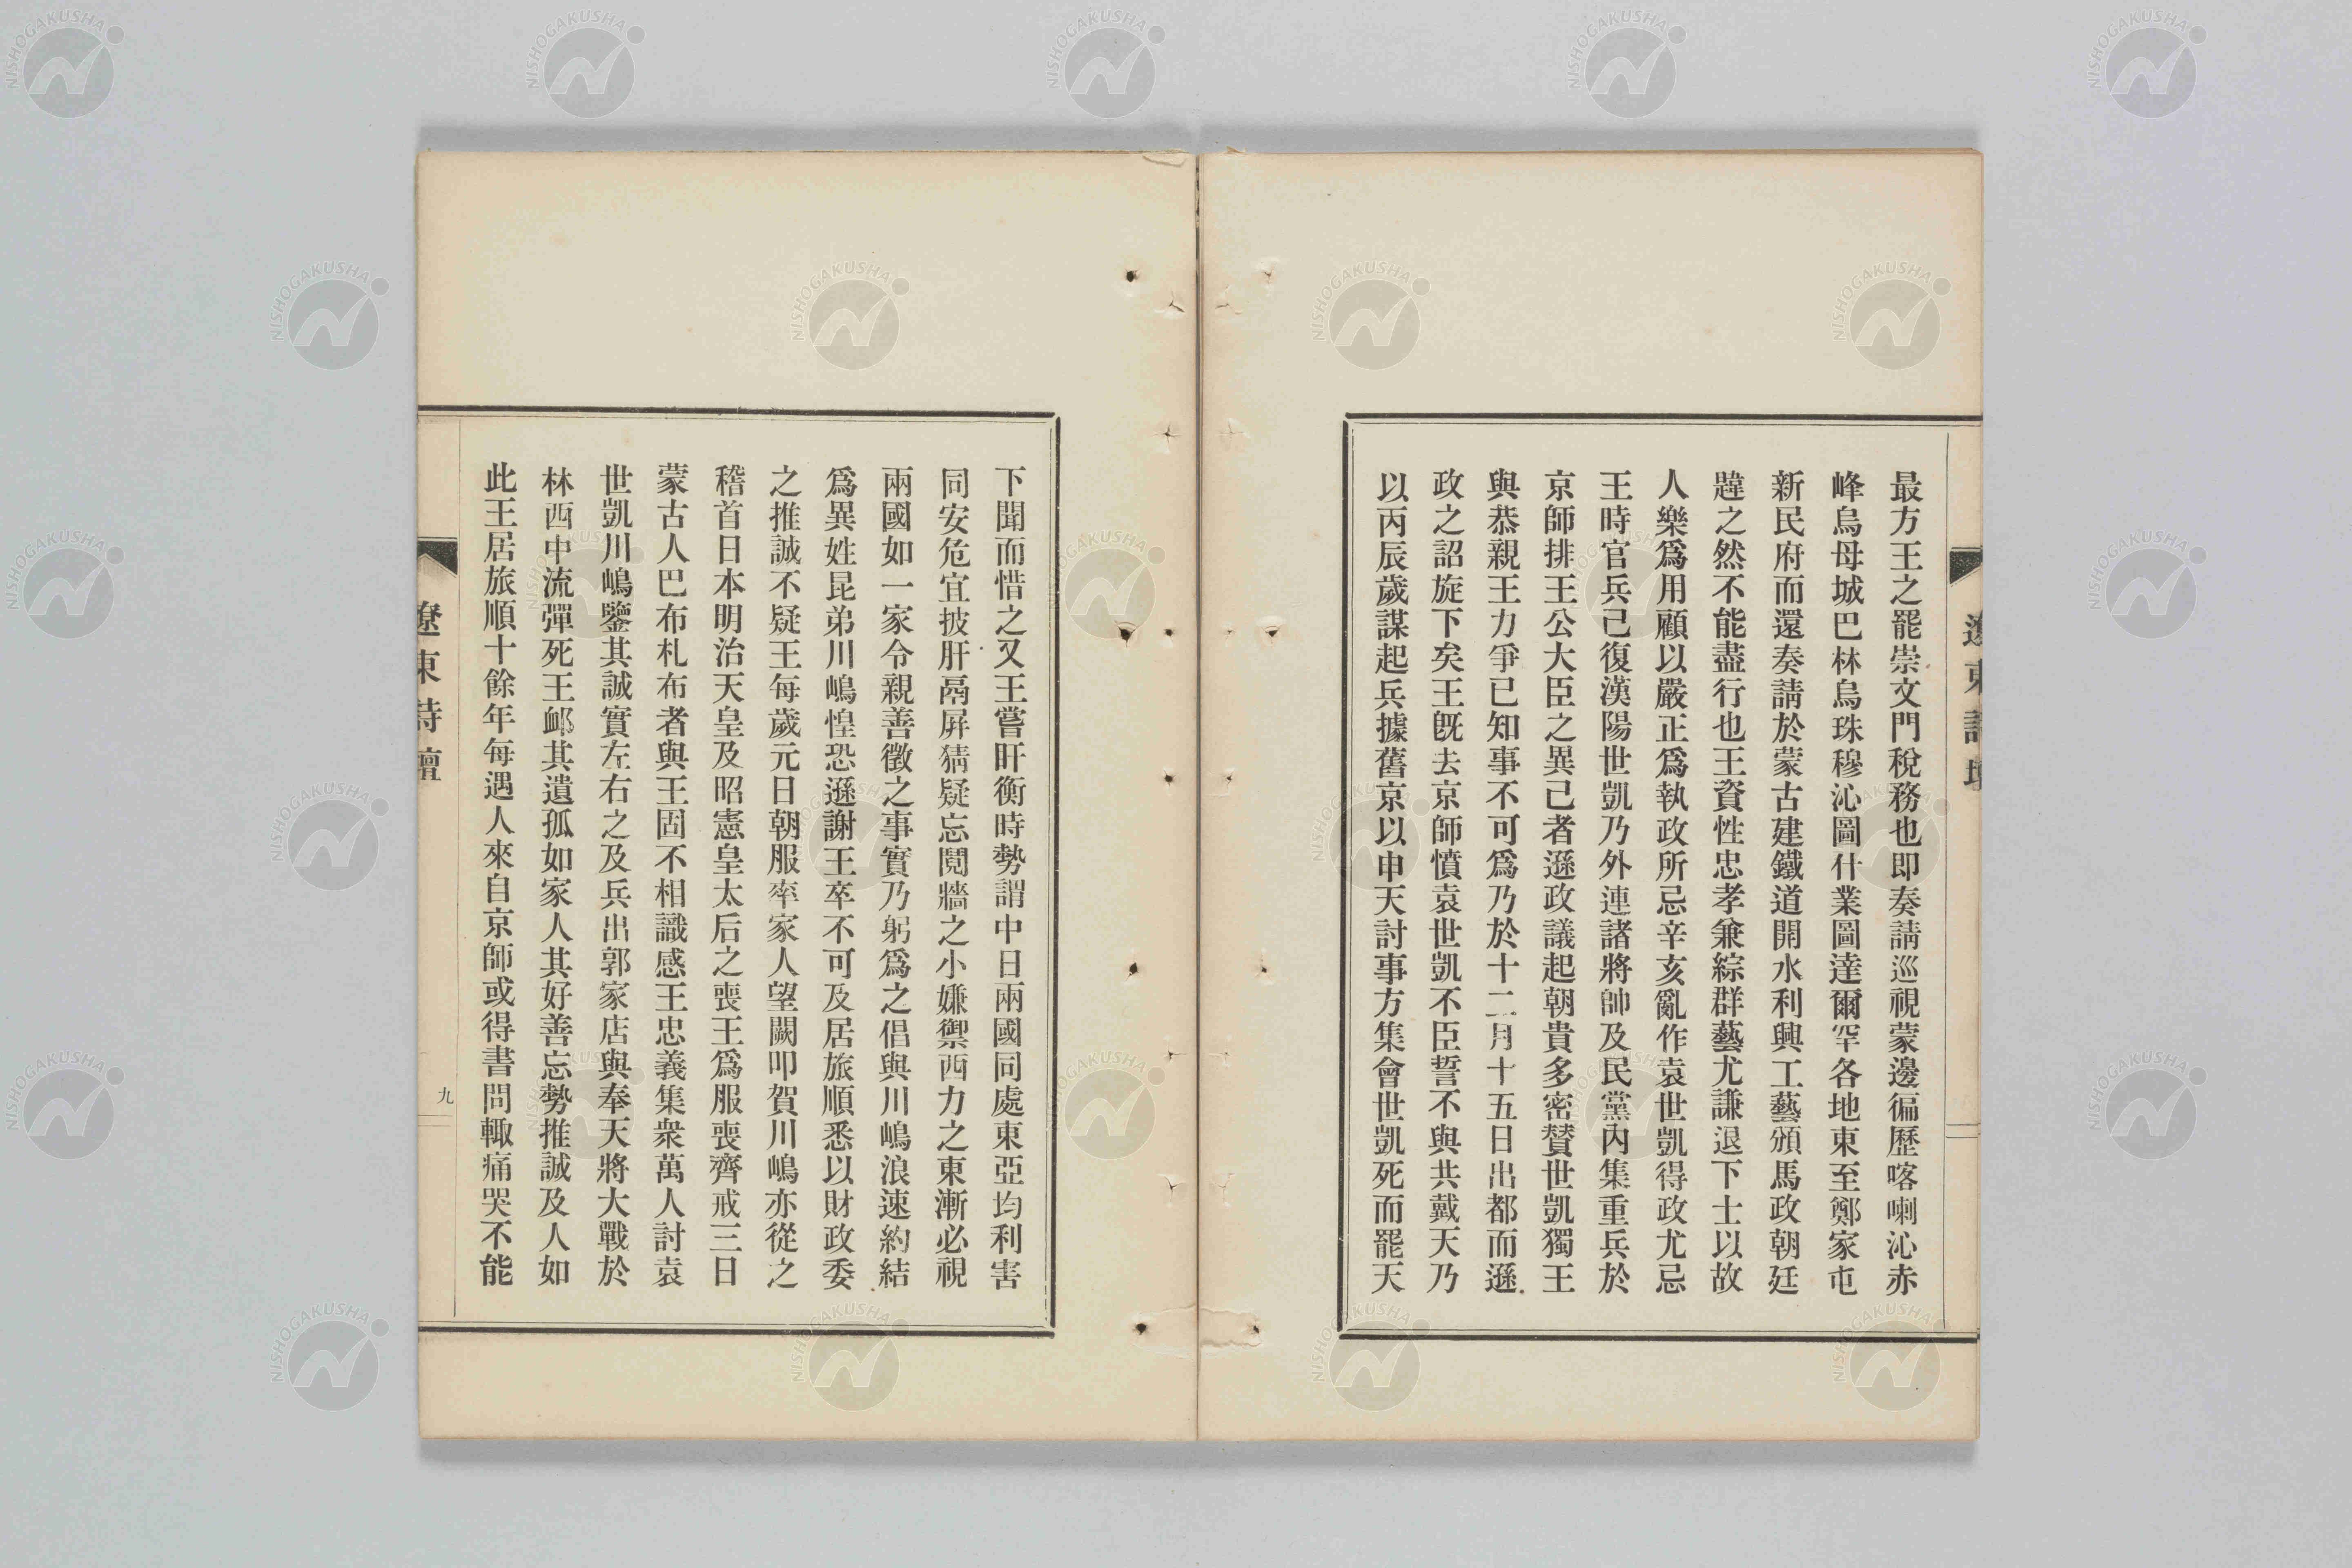 遼東詩壇
最方王之罷崇文門稅務也即奏請巡視蒙邊徧歷喀喇沁赤
峰烏母城巴林烏珠穆沁圖什業圖達爾罕各地東至鄭家屯
新民府而還奏請於蒙古建鐵道開水利興工藝頒馬政朝廷
韙之然不能盡行也王資性忠孝兼綜群藝尤謙退下士以故
人樂爲用顧以嚴正爲執政所忌辛亥亂作袁世凱得政尤忌
王時官兵己復漢陽世凱乃外連諸將帥及民黨內集重兵於
京師排王公大臣之異己者遜政議起朝貴多密贊世凱獨王
與恭親王力爭已知事不可爲乃於十二月十五日出都而遜
政之詔旋下矣王既去京師憤袁世凱不臣誓不與共戴天乃
以丙辰歲謀起兵據舊京以申天討事方集會世凱死而罷天
下聞而惜之又王嘗盱衡時勢謂中日兩國同處東亞均利害
同安危宜披肝鬲屛猜疑忘鬩牆之小嫌禦西力之東漸必視
兩國如一家令親善徵之事實乃躬爲之倡與川嶋浪速約結
爲異姓昆弟川嶋惶恐遜謝王卒不可及居旅順悉以財政委
之推誠不疑王每歲元日朝服率家人望闕叩賀川嶋亦從之
稽首日本明治天皇及昭憲皇太后之喪王爲服喪齊戒三日
蒙古人巴布札布者與王固不相識感王忠義集衆萬人討袁
世凱川嶋鑒其誠實左右之及兵出郭家店與奉天將大戰於
林西中流彈死王卹其遺孤如家人其好善忘勢推誠及人如
此王居旅順十餘年每遇人來自京師或得書問輙痛哭不能
遼東詩壇
九
NISHOGAKUSHA